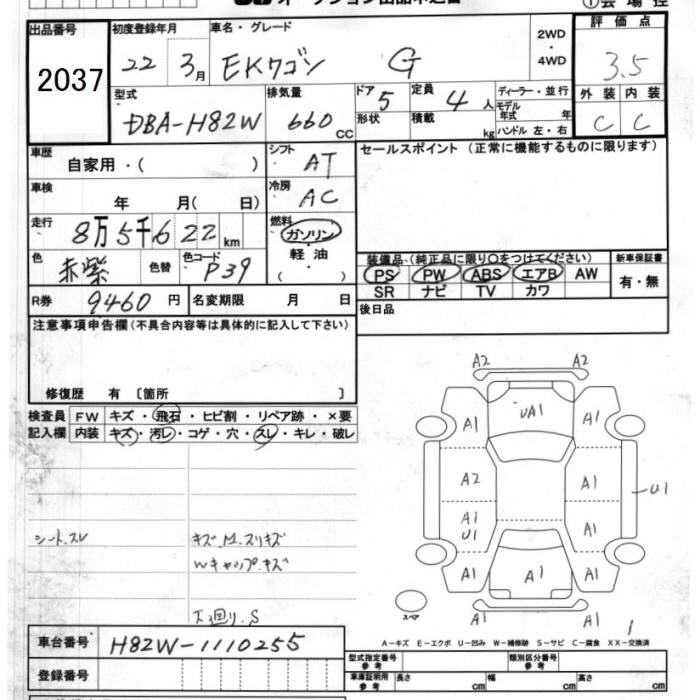 出品番号 初度登録年月 車名・グレード 2WD・4WD 評価点
2037 22 3月 EKワゴン G 3.5
型式 排気量 ドア 定員 ディーラー・並行 外装 内装
DBA-H82W 660 CC 5 4人 モデル年式 年 C C
形状 積載 kg ハンドル 左・右
車歴 自家用・( ) シフト AT セールスポイント (正常に機能するものに限ります)
車検 年 月( 日) 冷房 AC
走行 8万5千622km 燃料 ガソリン・軽油・( )
色 赤紫 色替 色コード P39 装備品 (純正品に限り○をつけてください) 新車保証書
PS PW ABS エアB AW 有・無
SR ナビ TV カワ
R券 9460円 名変期限 月 日 後日品
注意事項申告欄 (不具合内容等は具体的に記入して下さい)
修復歴 有 〔箇所 〕
検査員 FW キズ・飛石・ヒビ割・リペア跡・×要
記入欄 内装 キズ・汚レ・コゲ・穴・スレ・キレ・破レ
シート.スレ キズ.M.スリキズ
Wキャップ.キズ
下廻り.S
A2 A2
A1 UA1 A1
A2 A1 U1
A1 U1 A1
A1 A1 A1
スペア A1 A1 1
A-キズ E-エクボ U-凹み W-補修跡 S-サビ C-腐食 XX-交換済
車台番号 H82W-1110255
型式指定番号 参考 類別区分番号 参考
登録番号 車庫証明用 参考 長さ cm 幅 cm 高さ cm